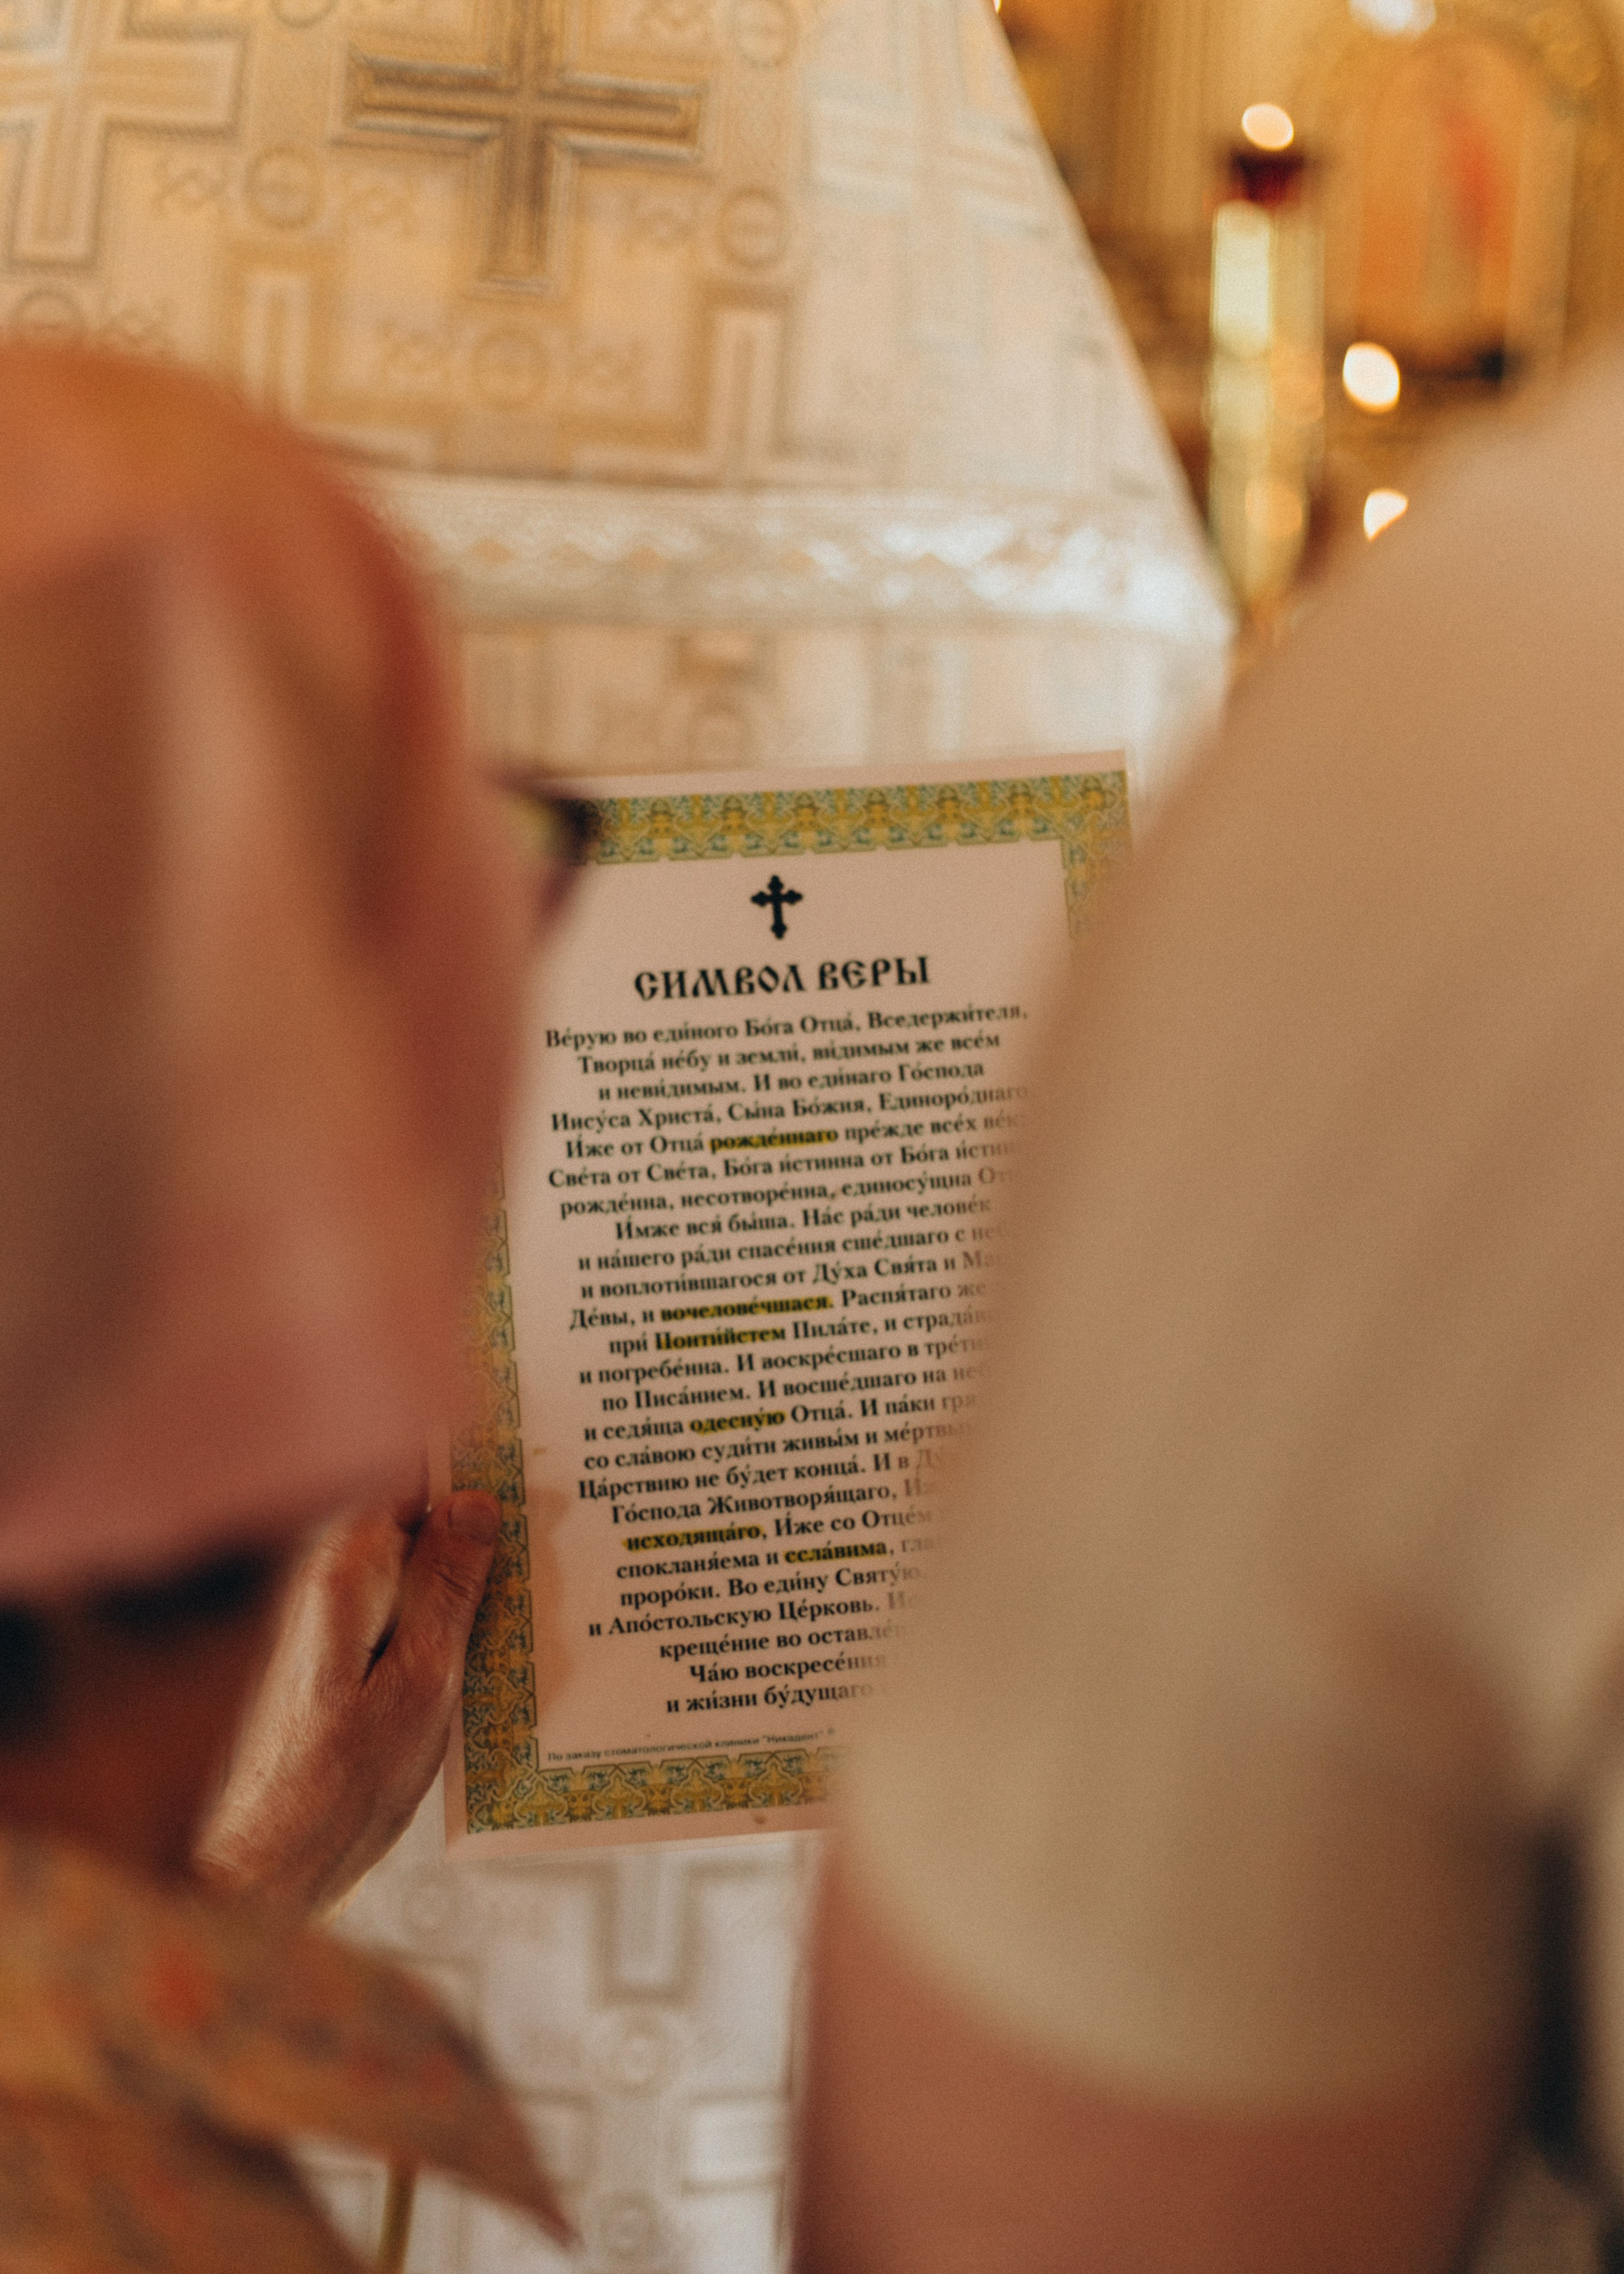 СИМВОЛ ВЕРЫ
Ве́рую во еди́ного Бо́га Отца́, Вседержи́теля,
Творца́ не́бу и земли́, ви́димым же все́м
и неви́димым. И во еди́наго Го́спода
Иису́са Христа́, Сы́на Бо́жия, Единоро́днаго
И́же от Отца́ рожде́ннаго пре́жде все́х
Све́та от Све́та, Бо́га и́стинна от Бо́га
рожде́нна, несотворе́нна, единосу́щна
И́мже вся́ бы́ша. На́с ра́ди челове́к
и на́шего ра́ди спасе́ния сше́дшаго с
и воплоти́вшагося от Ду́ха Свя́та и
Де́вы, и вочелове́чшася. Распя́таго же
при́ Понти́йстем Пила́те, и
и погребе́нна. И воскре́сшаго в
по Писа́нием. И восше́дшаго на
и седя́ща одесну́ю Отца́. И па́ки
со сла́вою суди́ти живы́м и
Ца́рствию не бу́дет конца́. И в
Го́спода Животворя́щаго,
исходяща́го, И́же со Отце́м
спокланя́ема и ссла́вима,
проро́ки. Во еди́ну Святу́ю.
и Апо́стольскую Це́рковь.
креще́ние во
Ча́ю воскресе́ния
и жи́зни бу́дущаго
По заказу стоматологической клиники "Никадент"